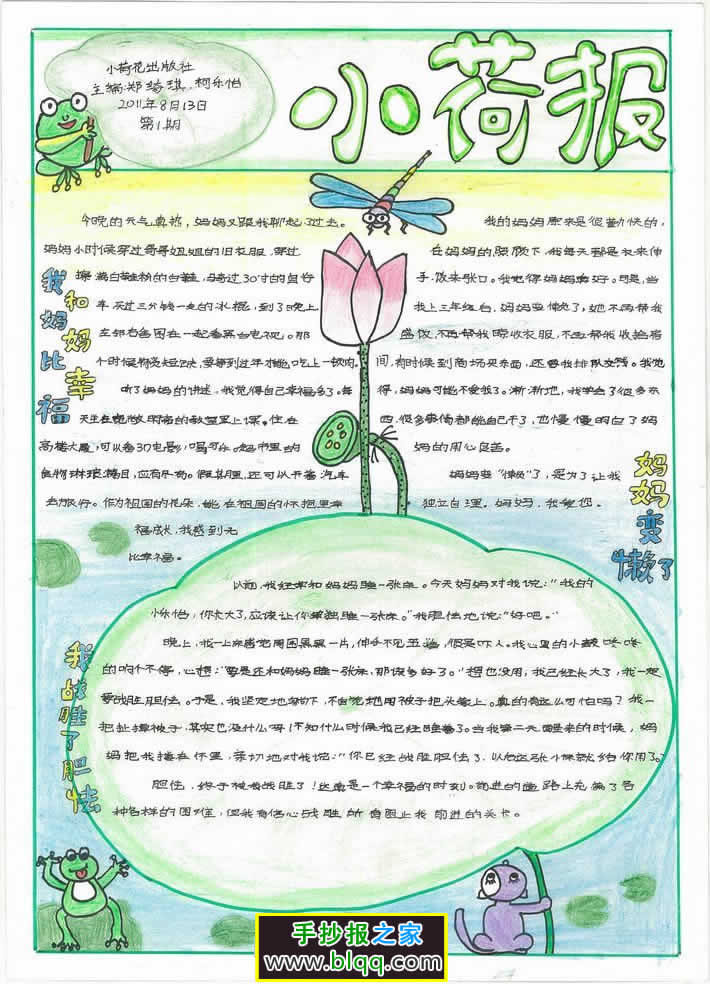 小荷报
小荷花出版社
主编:郑绮琪.柯乐怡
2011年8月13日
第1期
我和妈妈比幸福
今晚的天气真热，妈妈又跟我聊起了过去。
妈妈小时候穿过哥哥姐姐的旧衣服，穿过
擦满白鞋粉的白鞋，骑过30寸的自行
车，买过三分钱一支的冰棍，到了晚上
左邻右舍围在一起看黑白电视。那
个时候物资短缺，要等到过年才能吃上一顿肉。
听了妈妈的讲述，我觉得自己幸福多了。每
天坐在宽敞明亮的教室里上课。住在
高楼大厦，可以看3D电影，喝可乐。超市里的
食物琳琅满目，应有尽有。假其里，还可以开着汽车
去旅行。作为祖国的花朵，能在祖国的怀抱里幸
福成长，我感到无
比幸福。
妈妈变懒了
我的妈妈原来是很勤快的，
在妈妈的照顾下，我每天都是衣来伸
手，饭来张口。我觉得妈妈真好。可是，当
我上三年级后，妈妈变懒了，她不再帮我
盛饭，不再帮我晾收衣服，不再帮我收拾房
间，有时候到商场买东西，还要我排队交钱。我觉
得，妈妈可能不爱我了。渐渐地，我学会了很多东
西，很多事情都能自己干了，也慢慢明白了妈
妈的用心良苦。
妈妈变“懒”了，是为了让我
独立自理。妈妈，我爱您。
我战胜了胆怯
以前，我经常和妈妈睡一张床。今天妈妈对我说：“我的
小乐怡，你长大了，应该让你单独睡一张床。”我胆怯地说：“好吧。”
晚上，我一上床感觉周围黑黑一片，伸手不见五指，很是吓人。我心里的小鼓咚咚
的响个不停，心想：“要是还和妈妈睡一张床，那该多好了。”想也没用，我已经长大了，我一定
要战胜胆怯。于是，我坚定地躺下，不自觉地用被子把头蒙上。真的有这么可怕吗？我一
把扯掉被子，其实也没什么呀！不知什么时候我已经睡着了。当我第二天醒来的时候，妈
妈把我搂在怀里，亲切地对我说：“你已经战胜胆怯了，以后这张小床就给你用了。”
胆怯，终于被我战胜了！这真是一个幸福的时刻。前进的道路上充满了各
种各样的困难，但我有信心战胜所有阻止我前进的关卡。
手抄报之家
www.blqq.com